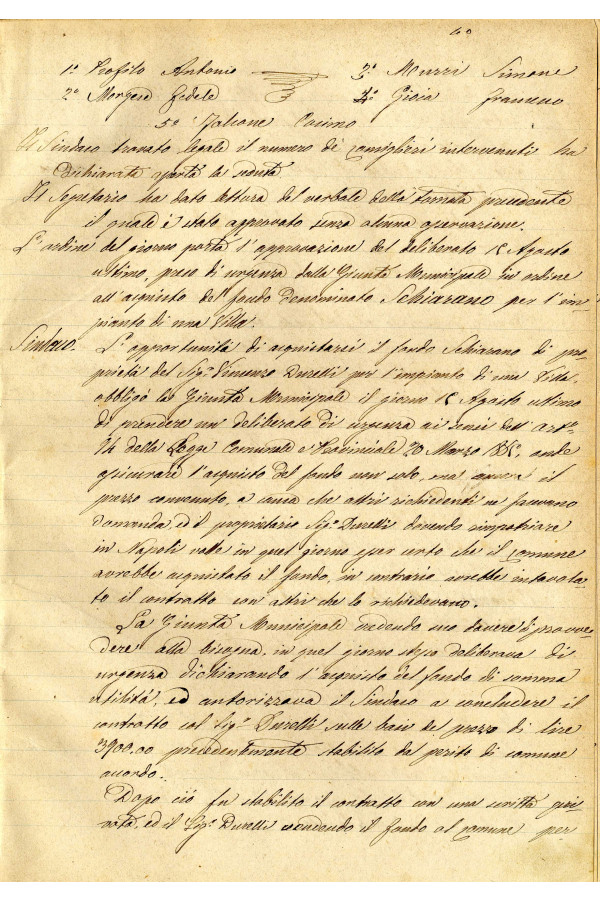 60
1º Profilo Antonio 3º Muzzi Simone
2º Morgese Fedele 4º Gioia Francesco
5º Falcone Cosimo
Il Sindaco trovato legale il numero di consiglieri intervenuti ha
dichiarata aperta la seduta
Il Segretario ha dato lettura del verbale della tornata precedente
il quale è stato approvato senza alcuna osservazione.
L'ordine del giorno porta l'approvazione del deliberato 15 Agosto
ultimo, preso di urgenza dalla Giunta Municipale in ordine
all'acquisto del fondo denominato Schiarano per l'im-
pianto di una Villa.
Sindaco. L'opportunità di acquistarsi il fondo Schiarano di pro-
prietà del Sigr Vincenzo Durelli per l'impianto di una Villa
obbligò la Giunta Municipale il giorno 15 Agosto ultimo
di prendere un deliberato di urgenza ai sensi dell'arto
94 della Legge Comunale e Provinciale 20 Marzo 1865, onde
assicurare l'acquisto del fondo non solo, ma ancora il
prezzo convenuto, a causa che altri richiedenti ne facevano
domanda, ed il proprietario Sigr Durelli dovendo rimpatriare
in Napoli volle in quel giorno esser certo che il Comune
avrebbe acquistato il fondo, in contrario avrebbe intavola-
to il contratto con altri che lo richiedevano.
La Giunta Municipale credendo suo dovere di provve-
dere alla bisogna, in quel giorno stesso deliberava di
urgenza dichiarando l'acquisto del fondo di somma
utilità, ed autorizzava il Sindaco a concludere il
contratto col Sigr Durelli sulle basi del prezzo di lire
3900,00 precedentemente stabilito dal perito di comune
accordo.
Dopo ciò fu stabilito il contratto con una scritta pri-
vata, ed il Sigr Durelli vendendo il fondo al Comune per